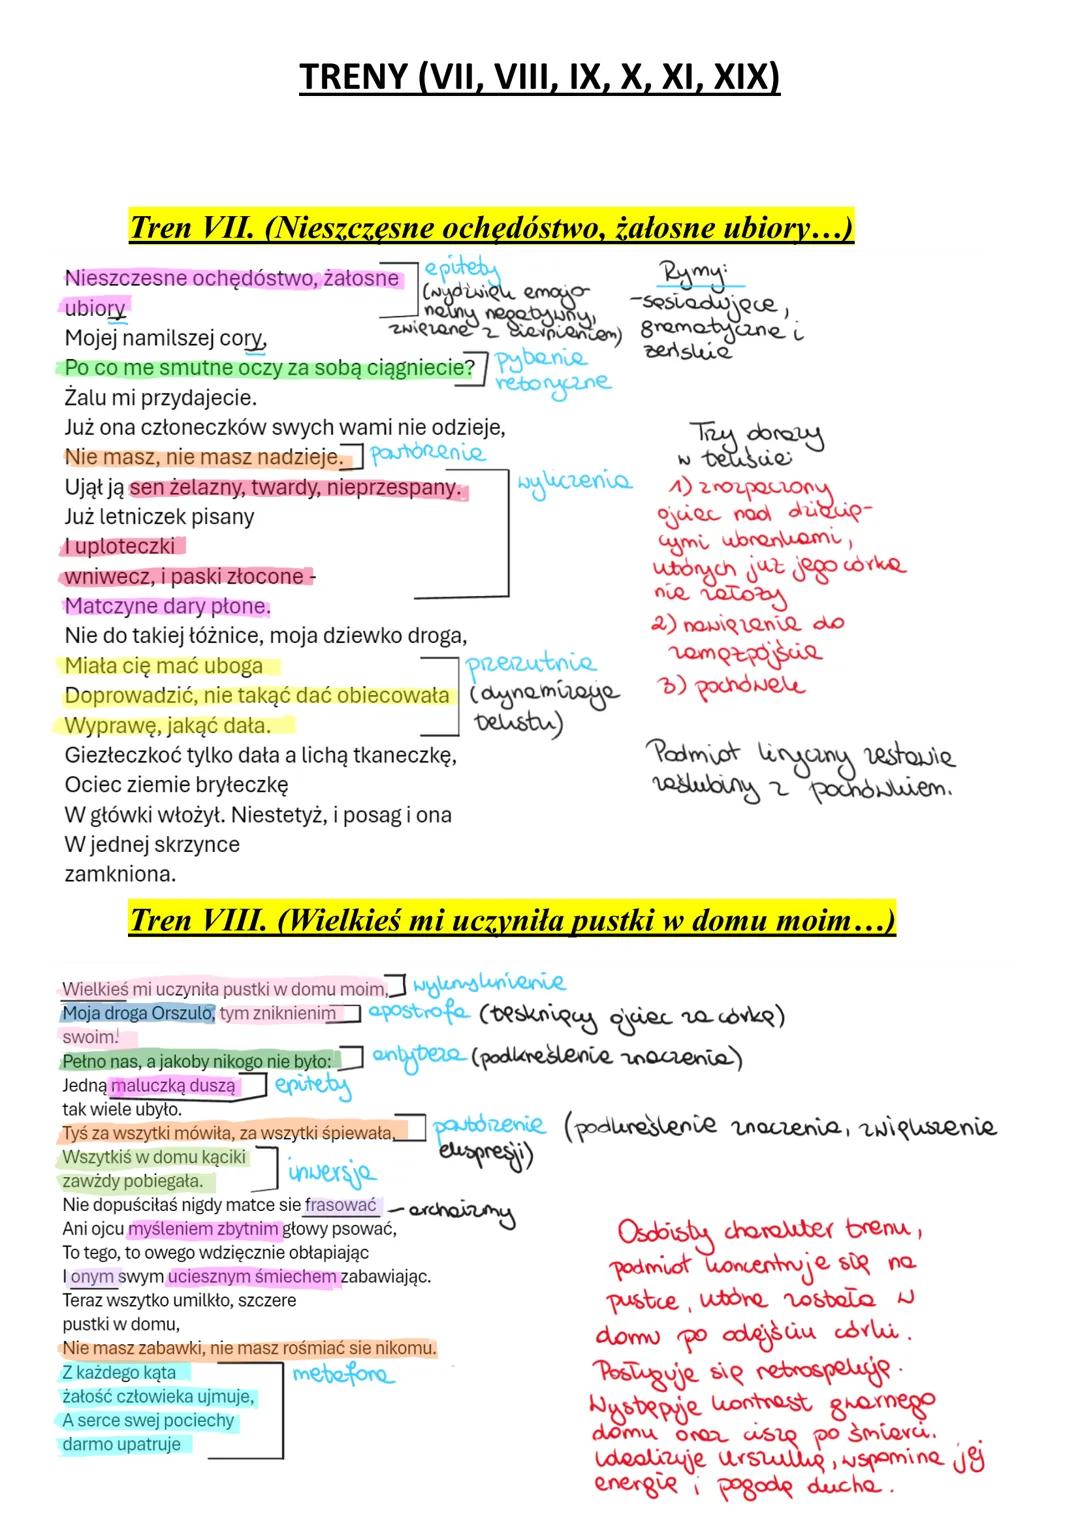 TRENY (VII, VIII, IX, X, XI, XIX)
Tren VII. (Nieszczęsne ochędóstwo, żałosne ubiory…)
Nieszczesne ochędóstwo, żałosne
ubiory
Mojej namilszej cory,
Po co me smutne oczy za sobą ciągniecie?
Żalu mi przydajecie.
Już ona członeczków swych wami nie odzieje,
Nie masz, nie masz nadzieje.
Ujął ją sen żelazny, twardy, nieprzespany.
Już letniczek pisany
I uploteczki
wniwecz, i paski złocone -
Matczyne dary płone.
Nie do takiej łóżnice, moja dziewko droga,
Miała cię mać uboga
Doprowadzić, nie takąć dać obiecowała
Wyprawę, jakąć dała.
Giezłeczkoć tylko dała a lichą tkaneczkę,
Ociec ziemie bryłeczkę
W główki włożył. Niestetyż, i posag i ona
W jednej skrzynce
zamkniona.
epitety
(wydźwięk emocjo-
nalny negatywny,
związane z cierpieniem)
pytanie
retoryczne
powtórzenie
wyliczenia
przerzutnia
(dynamizacja
tekstu)
Rymy:
-sąsiadujące,
gramatyczne i
żeńskie
Trzy obrazy
w tekście:
1) zrozpaczony
ojciec nad dziecię-
cymi ubrankami,
których już jego córka
nie założy
2) nawiązanie do
zamążpójścia
3) pochówek
Podmiot liryczny zestawia
zaślubiny z pochówkiem.
Tren VIII. (Wielkieś mi uczyniła pustki w domu moim…)
Wielkieś mi uczyniła pustki w domu moim,
Moja droga Orszulo, tym zniknienim
swoim!
Pełno nas, a jakoby nikogo nie było:
Jedną maluczką duszą
tak wiele ubyło.
Tyś za wszytki mówiła, za wszytki śpiewała,
Wszytkiś w domu kąciki
zawżdy pobiegała.
Nie dopuściłaś nigdy matce sie frasować
Ani ojcu myśleniem zbytnim głowy psować,
To tego, to owego wdzięcznie obłapiając
I onym swym uciesznym śmiechem zabawiając.
Teraz wszytko umilkło, szczere
pustki w domu,
Nie masz zabawki, nie masz rośmiać sie nikomu.
Z każdego kąta
żałość człowieka ujmuje,
A serce swej pociechy
darmo upatruje
wykrzyknienie
apostrofa (tęskniący ojciec za córką)
antyteza (podkreślenie znaczenia)
epitety
powtórzenie (podkreślenie znaczenia, zwiększenie
ekspresji)
inwersja
- archaizmy
metafora
Osobisty charakter trenu,
podmiot koncentruje się na
pustce, która została w
domu po odejściu córki.
Posługuje się retrospekcją.
Występuje kontrast gwarnego
domu oraz ciszą po śmierci.
Idealizuje Urszulkę, wspomina jej
energię i pogodę ducha.